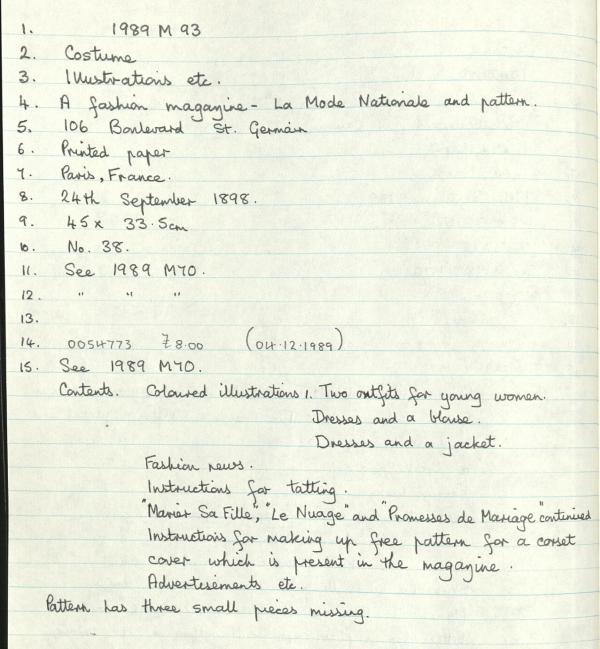 1. 1989 M 93
2. Costume
3. Illustrations etc.
4. A fashion magazine - La Mode Nationale and pattern.
5. 106 Boulevard St. Germain
6. Printed paper
7. Paris, France.
8. 24th September 1898.
9. 45 x 33.5cm
10. No. 38.
11. See 1989 M70.
12. " " "
13.
14. 0054773 £8.00 (04.12.1989)
15. See 1989 M70.
Contents. Coloured illustrations 1. Two outfits for young women.
Dresses and a blouse.
Dresses and a jacket.
Fashion news.
Instructions for tatting.
"Marier Sa Fille", "Le Nuage" and "Promesses de Mariage" continued
Instructions for making up free pattern for a corset
cover which is present in the magazine.
Advertisements etc.
Pattern has three small pieces missing.